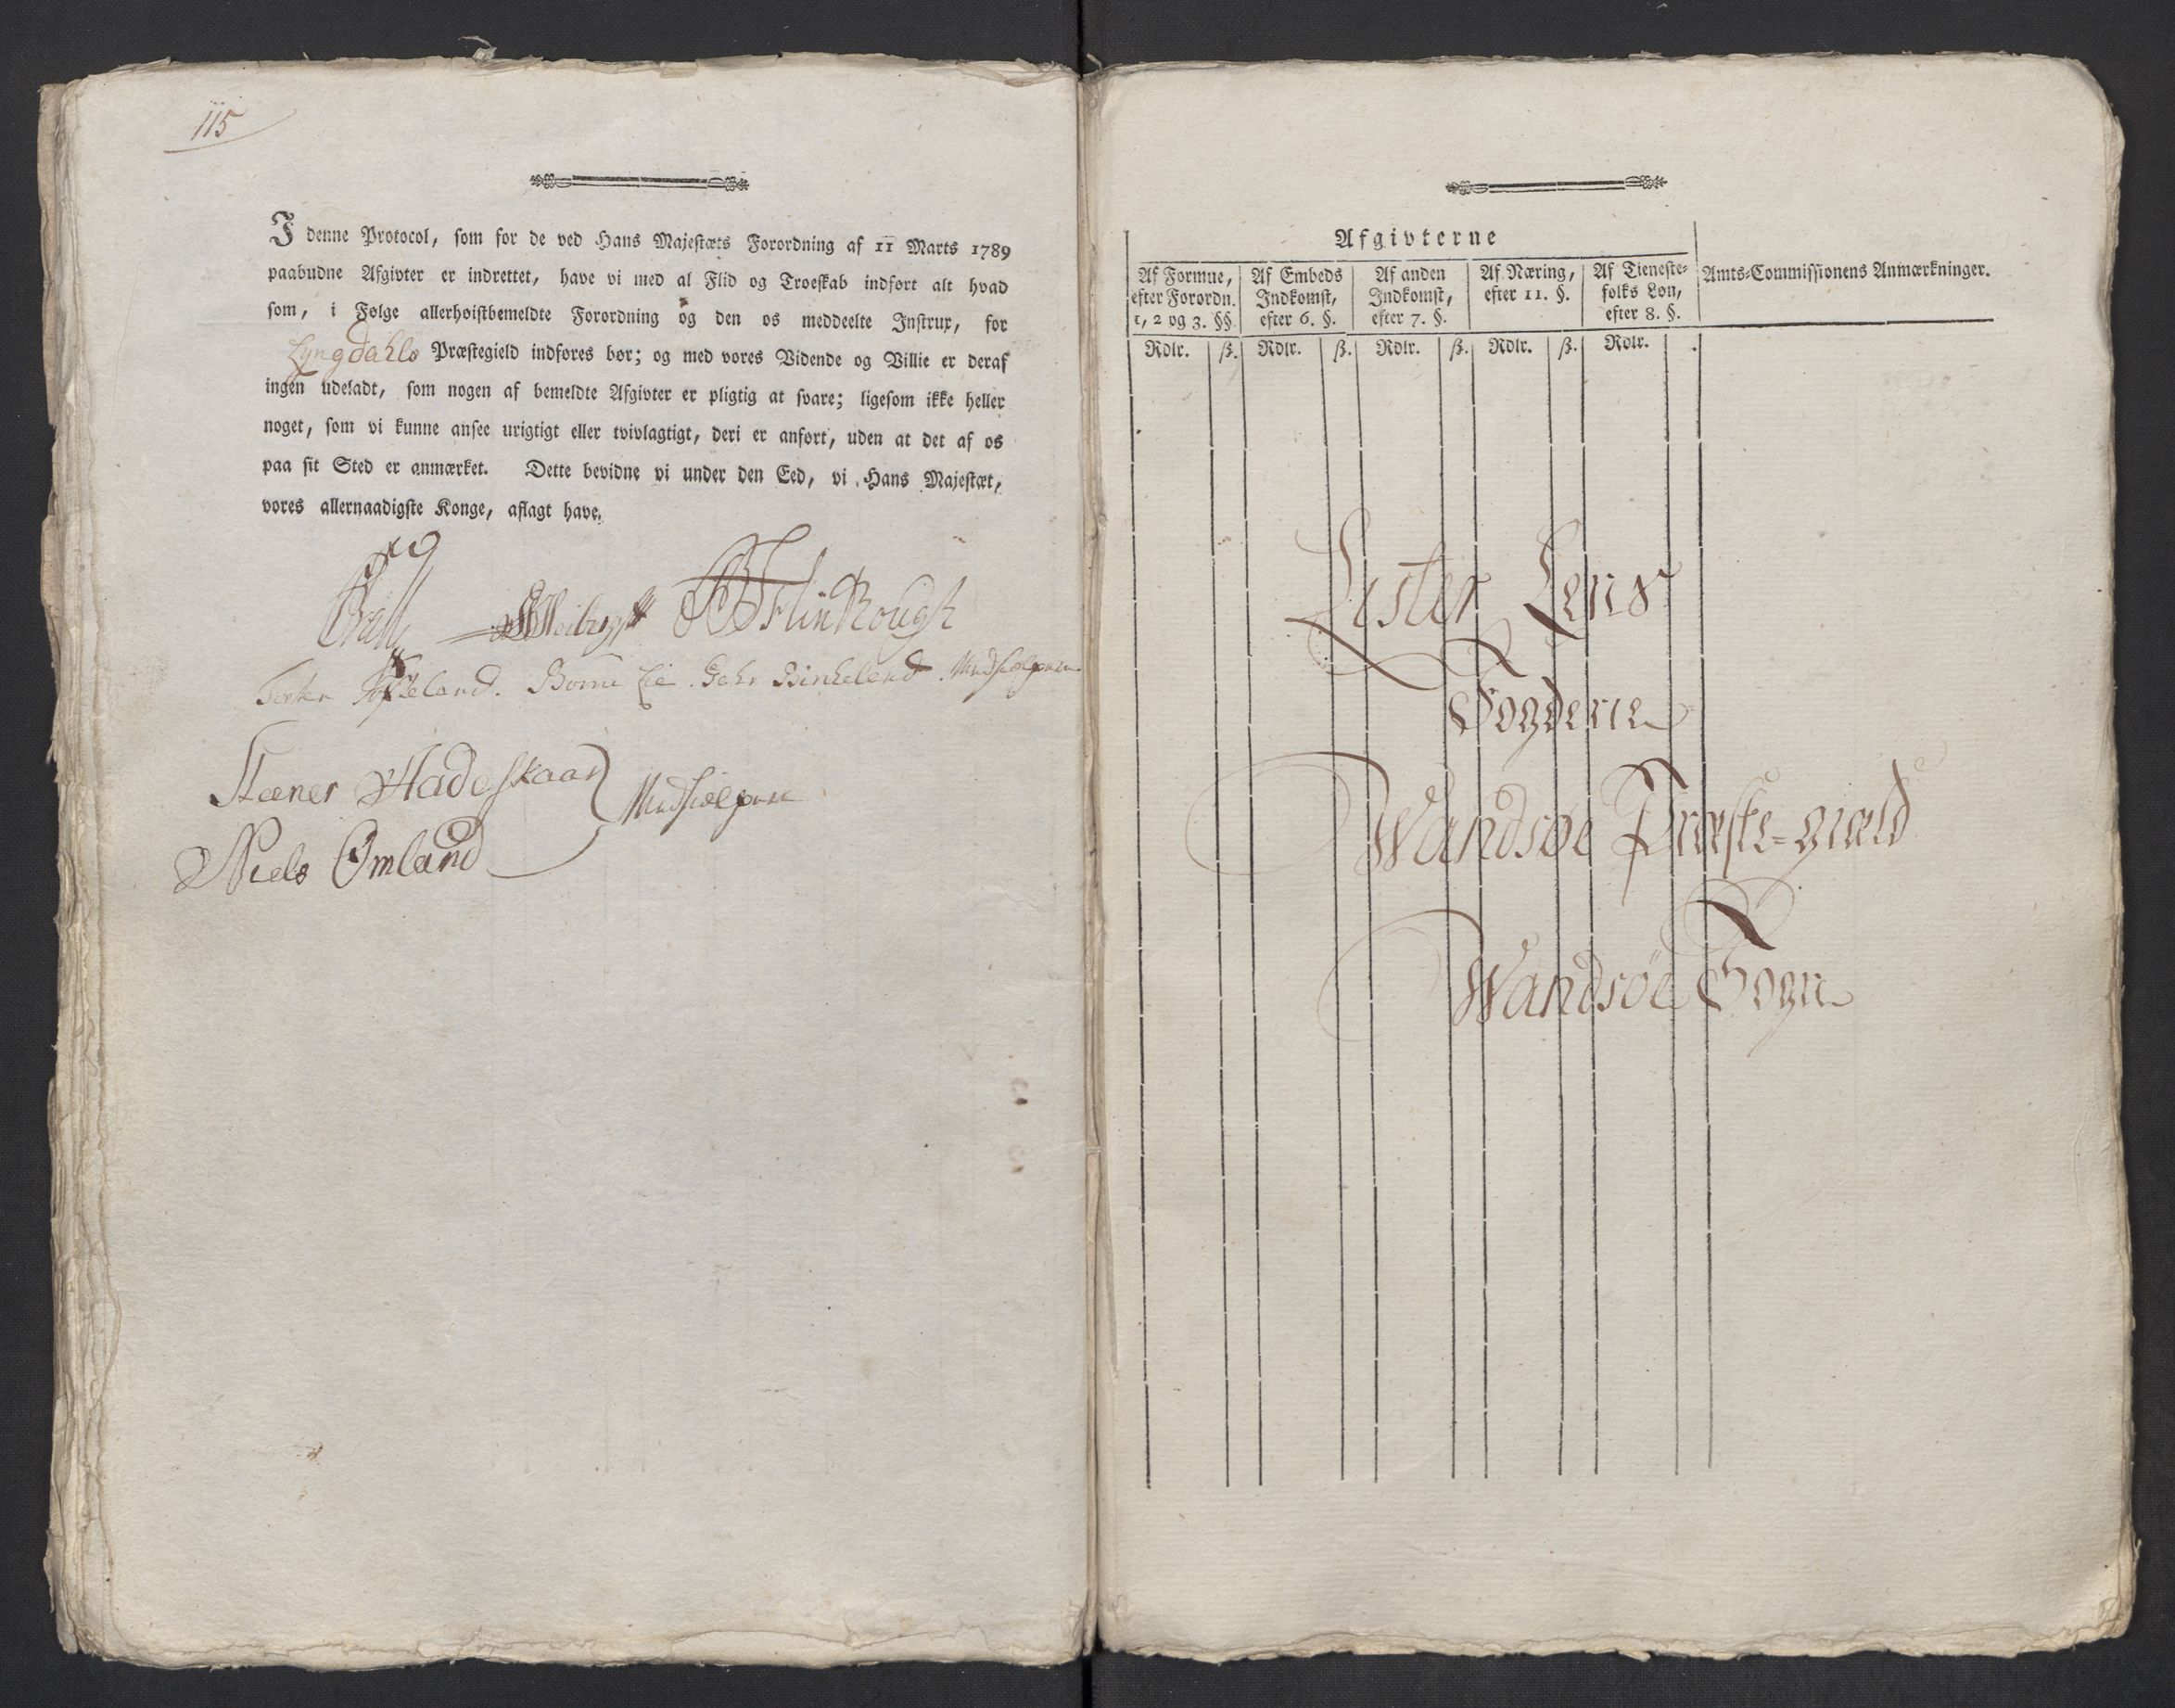 115
I denne Protocol, som for de ved Hans Majestæts Forordning af 11 Marts 1789
paabudne Afgivter er indrettet, have vi med al Flid og Troeskab indført alt hvad
som, i Følge allerhøistbemeldte Forordning og den os meddeelte Instrux, for
Lyngdahls Præstegield indføres bør; og med vores Vidende og Villie er deraf
ingen udeladt, som nogen af bemeldte Afgivter er pligtig at svare; ligesom ikke heller
noget, som vi kunne ansee urigtigt eller tvivlagtigt, deri er anført, uden at det af os
paa sit Sted er anmærket. Dette bevidne vi under den Eed, vi Hans Majestæt,
vores allernaadigste Konge, aflagt have.
Birkeland
Steener Hadeskaar
Niels Omland
Afgivterne
Af Formue, efter Forordn. 1, 2 og 3. §§.
Af Embeds Indkomst, efter 6. §.
Af anden Indkomst, efter 7. §.
Af Næring, efter 11. §.
Af Tieneste-folks Løn, efter 8. §.
Amts-Commissionens Anmærkninger.
Rdlr. ß. Rdlr. ß. Rdlr. ß. Rdlr. ß. Rdlr.
Lister Lens
Fogderie
Wandsøe Præste-giæld
Wandsøe Sogn